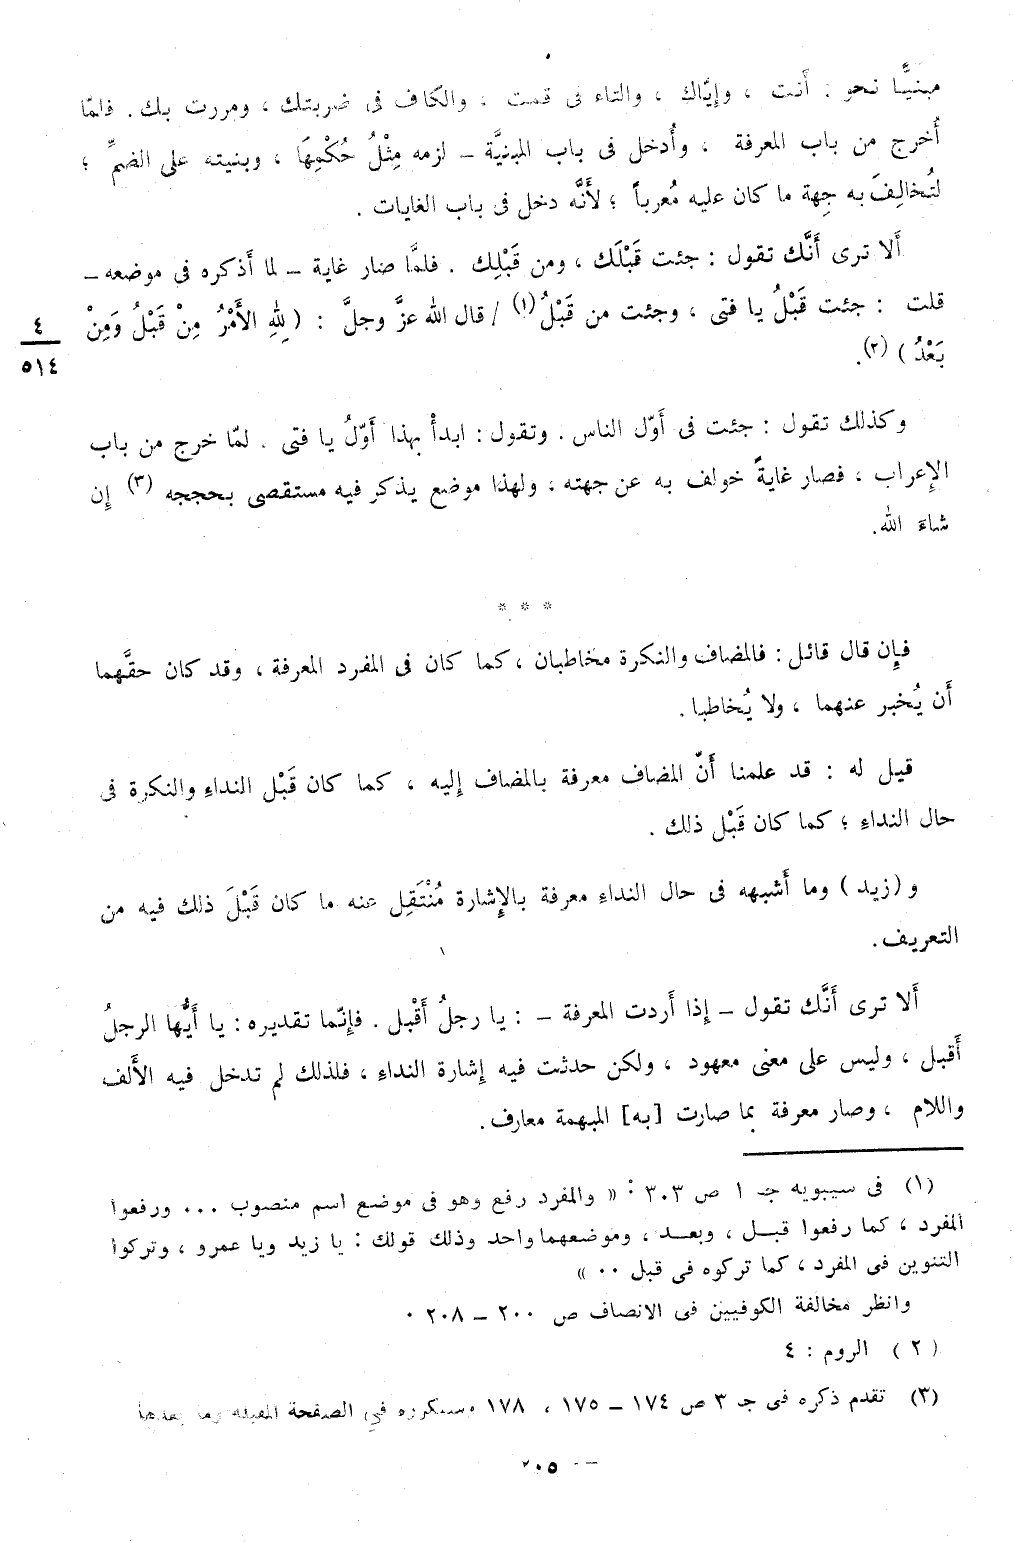 مبنيًّا نحو : أَنت ، وإيّاك ، والتاء فى قمت ، والكاف فى ضربتك ، ومررت بك . فلمّا
أُخرج من باب المعرفة ، وأُدخل فى باب المبنيَّة – لزمه مِثْلُ حُكْمِهَا ، وبنيته على الضمِّ ؛
لتُخالِفَ به جِهة ما كان عليه مُعرباً ؛ لأَنَّه دخل فى باب الغايات .
أَلا ترى أَنَّك تقول : جئت قَبْلَك ، ومن قَبْلِك . فلمَّا صار غاية – لما أَذكره فى موضعه –
قلت : جئت قَبْلُ يا فتى ، وجئت من قَبْلُ (١) / قال الله عزَّ وجلَّ : ( لِلهِ الأَمْرُ مِنْ قَبْلُ وَمِنْ
٤
٥١٤
بَعْدُ ) (٢).
وكذلك تقول : جئت فى أَوّل الناس . وتقول : ابدأْ بهذا أَوّلُ يا فتى . لمّا خرج من باب
الإِعراب ، فصار غايةً خولف به عن جهته ، ولهذا موضع يذكر فيه مستقصى بحججه (٣) إِن
شاءَ الله.
* * *
فإِن قال قائل : فالمضاف والنكرة مخاطبان ، كما كان فى المفرد المعرفة ، وقد كان حقَّهما
أَن يُخبر عنهما ، ولا يُخاطبا .
قيل له : قد علمنا أَنّ المضاف معرفة بالمضاف إِليه ، كما كان قَبْل النداءِ والنكرة فى
حال النداءِ ؛ كما كان قَبْل ذلك .
و (زيد) وما أَشبهه فى حال النداءِ معرفة بالإِشارة مُنْتَقِل عنه ما كان قَبْلَ ذلك فيه من
التعريف.
أَلا ترى أَنَّك تقول – إِذا أَردت المعرفة – : يا رجلُ أَقْبل . فإِنّما تقديره : يا أَيُّها الرجلُ
أَقبل ، وليس على معنى معهود ، ولكن حدثت فيه إِشارة النداءِ ، فلذلك لم تدخل فيه الأَلف
واللام ، وصار معرفة بما صارت [به] المبهمة معارف.
(١) فى سيبويه جـ ١ ص ٣٠٣ : « والمفرد رفع وهو فى موضع اسم منصوب ... ورفعوا
المفرد ، كما رفعوا قبـل ، وبعـد ، وموضعهما واحد وذلك قولك : يا زيد ويا عمرو ، وتركوا
التنوين فى المفرد ، كما تركوه فى قبل .. »
وانظر مخالفة الكوفيين فى الانصاف ص ٢٠٠ – ٢٠٨ .
( ٢ ) الروم : ٤
(٣) تقدم ذكره فى جـ ٣ ص ١٧٤ – ١٧٥ ، ١٧٨ وسيكرره في الصفحة المقبلة وما بعدها
– ٢٠٥